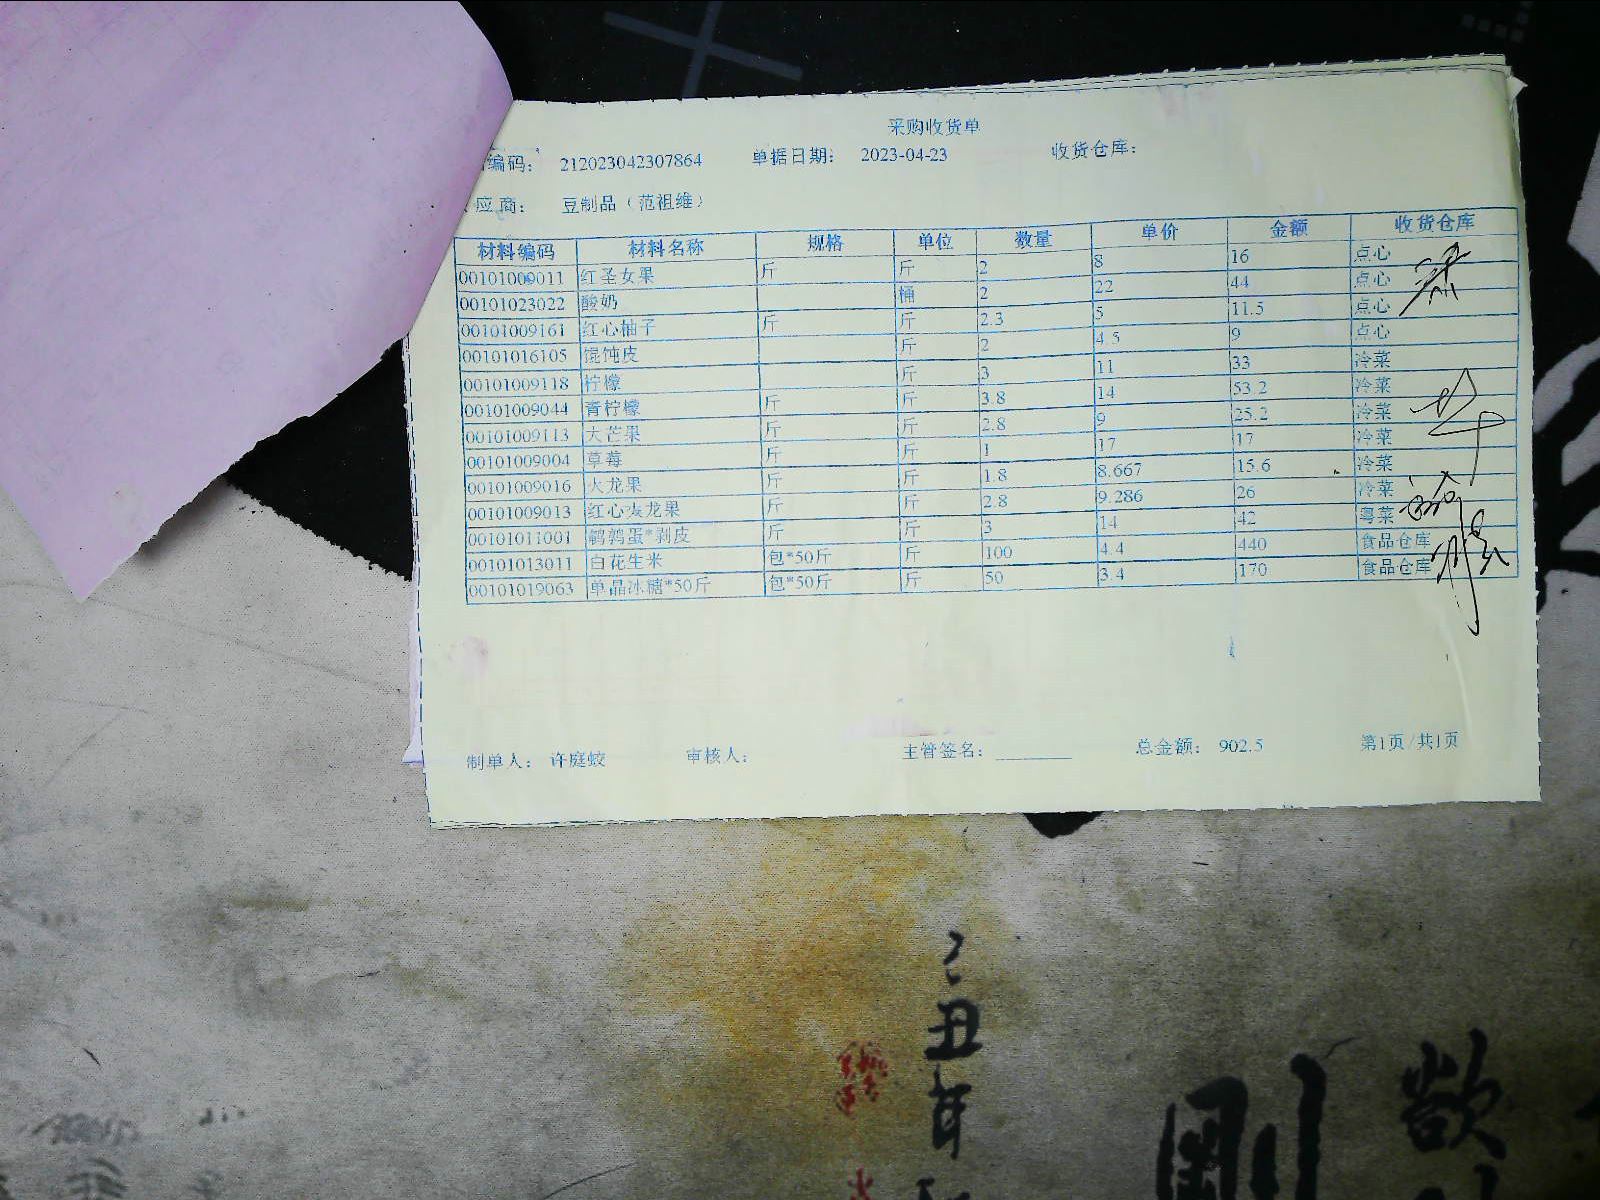 采购收货单
编码： 212023042307864 单据日期： 2023-04-23 收货仓库：
应商： 豆制品（范祖维）
材料编码 材料名称 规格 单位 数量 单价 金额 收货仓库
00101009011 红圣女果 斤 斤 2 8 16 点心
00101023022 酸奶 桶 2 22 44 点心
00101009161 红心柚子 斤 斤 2.3 5 11.5 点心
00101016105 馄饨皮 斤 2 4.5 9 点心
00101009118 柠檬 斤 3 11 33 冷菜
00101009044 青柠檬 斤 斤 3.8 14 53.2 冷菜
00101009113 大芒果 斤 斤 2.8 9 25.2 冷菜
00101009004 草莓 斤 斤 1 17 17 冷菜
00101009016 火龙果 斤 斤 1.8 8.667 15.6 冷菜
00101009013 红心火龙果 斤 斤 2.8 9.286 26 冷菜
00101011001 鹌鹑蛋*剥皮 斤 斤 3 14 42 粤菜
00101013011 白花生米 包*50斤 斤 100 4.4 440 食品仓库
00101019063 单晶冰糖*50斤 包*50斤 斤 50 3.4 170 食品仓库
制单人： 许庭蛟 审核人： 主管签名： 总金额： 902.5 第1页/共1页
丑年
剛
欲